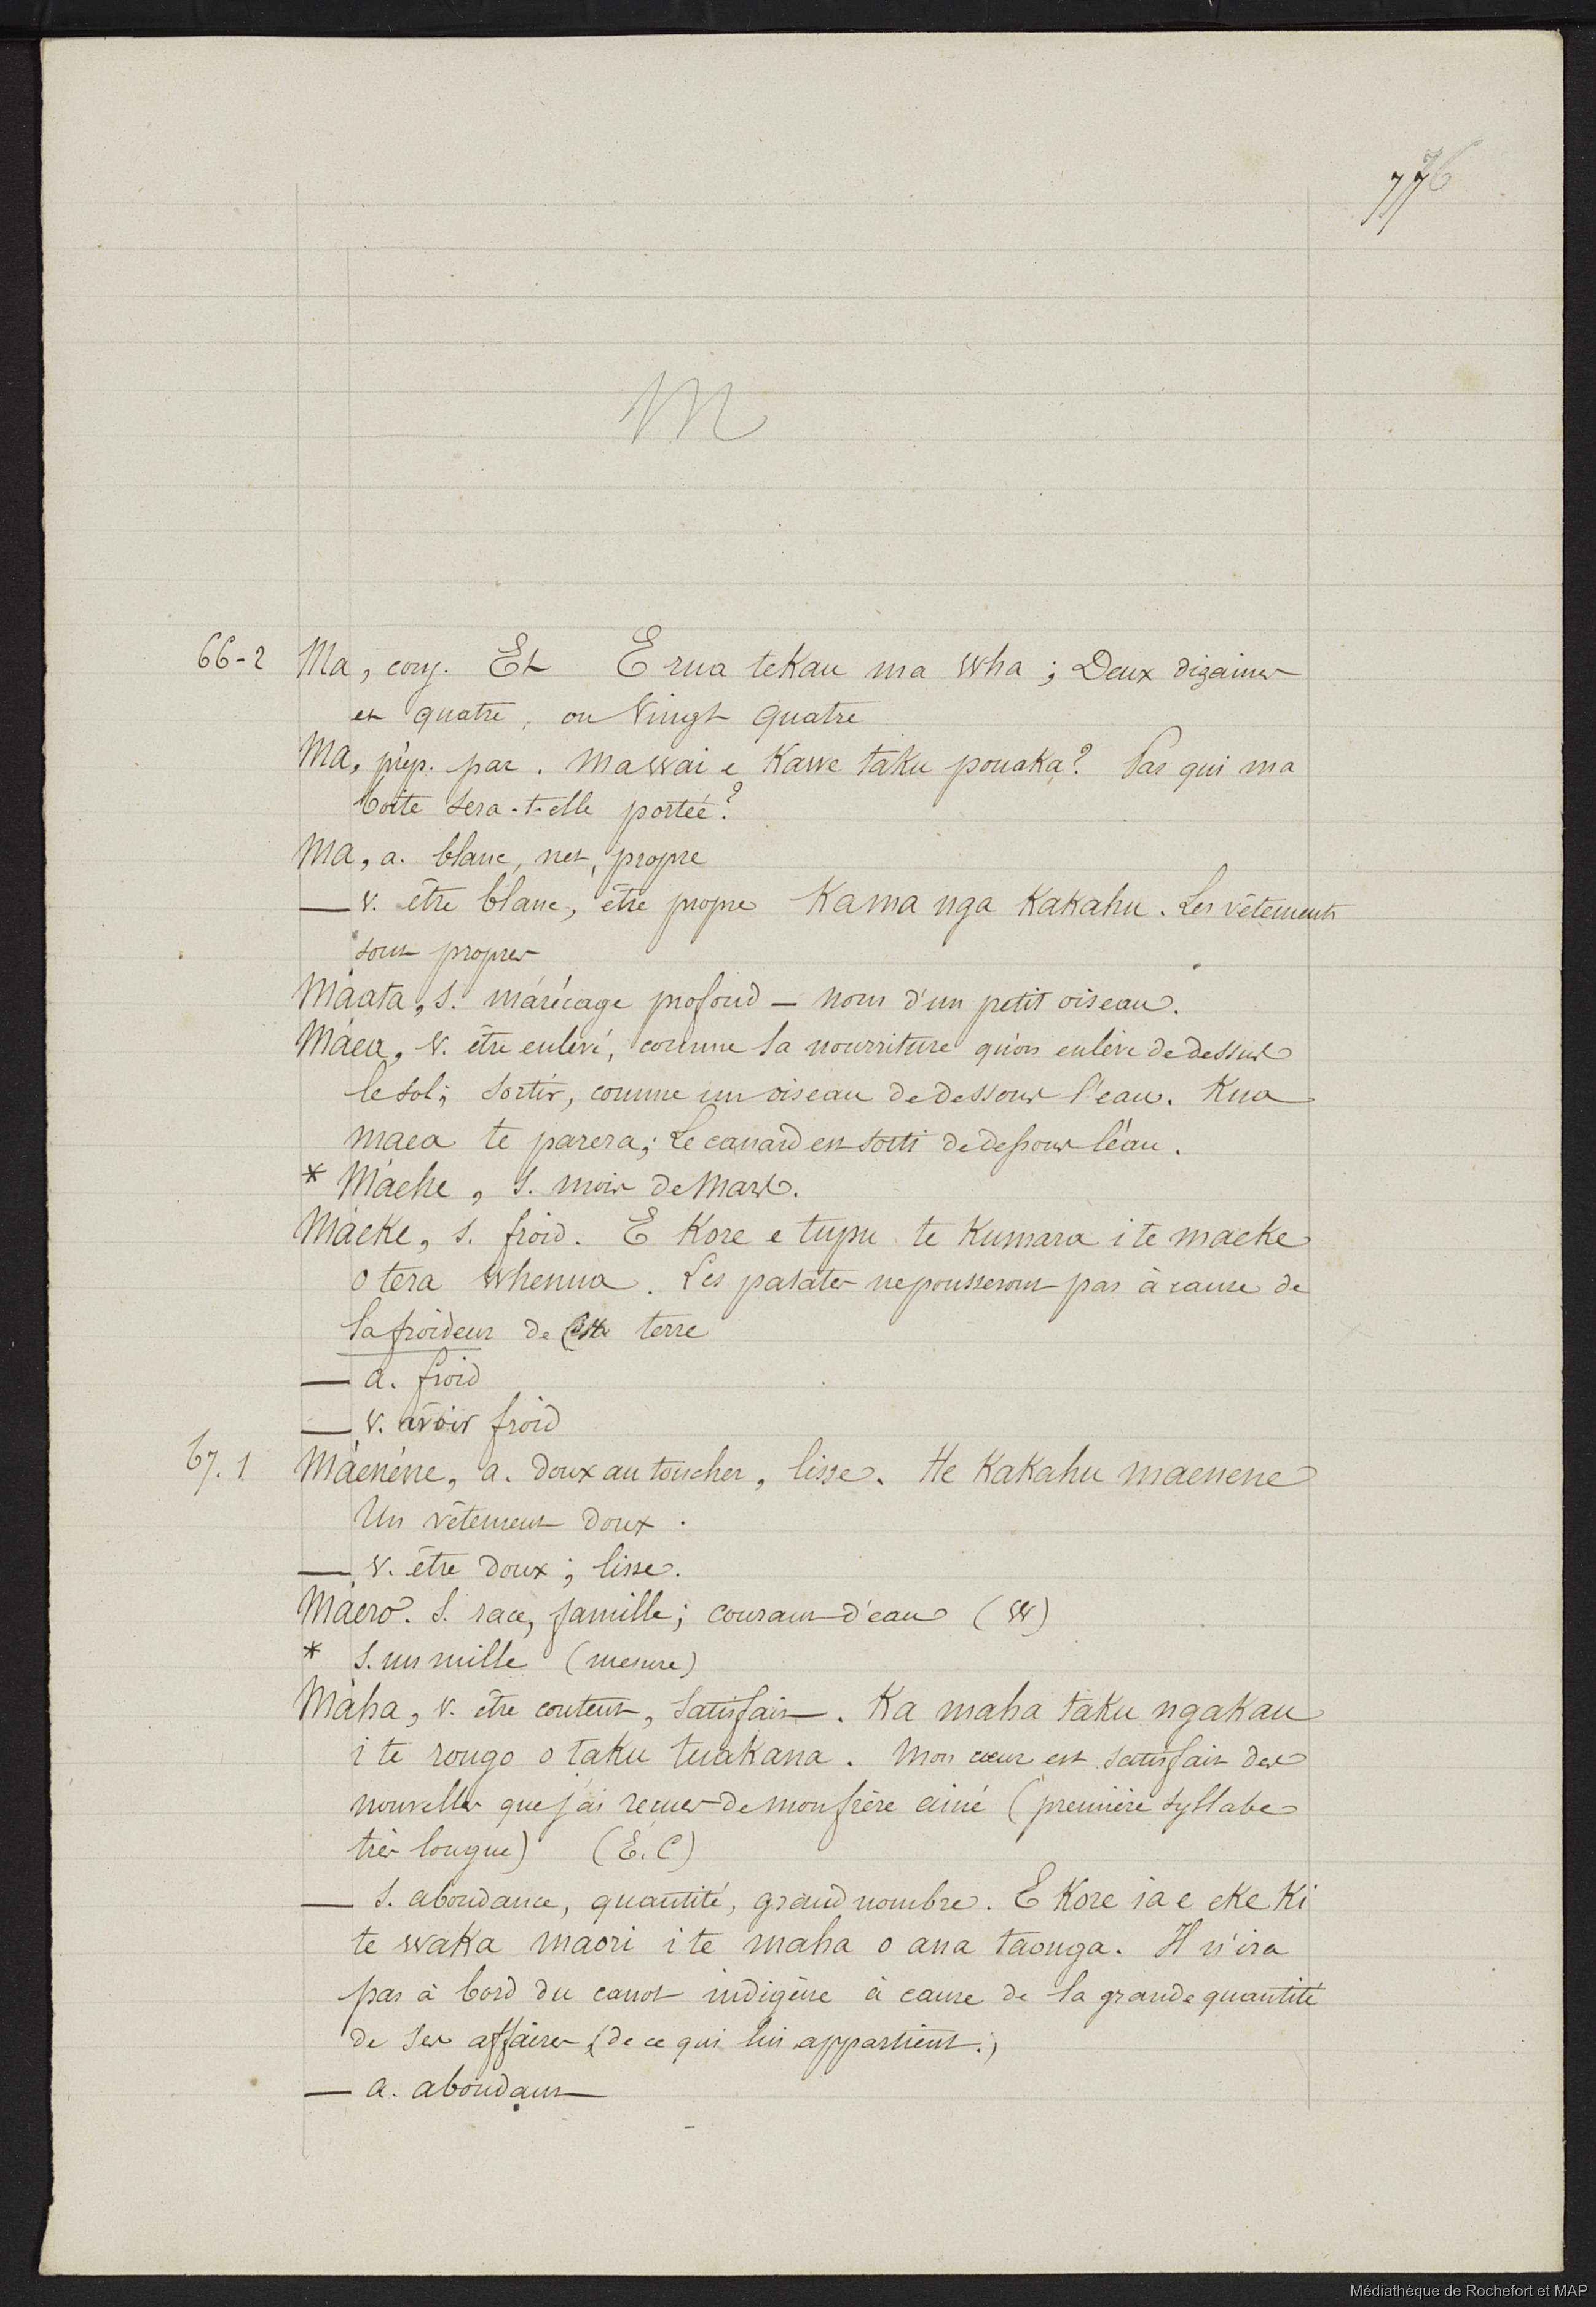 M
66-2 Ma, conj. Et E rua tekau ma wha ; Deux dizaines
et quatre, ou Vingt quatre
Ma, prép. par. Mawai e Kawe taku pouaka? Par qui ma
boîte sera-t-elle portée?
Ma, a. blanc, net, propre
— v. être blanc, être propre Kama nga Kakahu. Les vêtements
sont propres
Máata, s. marécage profond — nom d'un petit oiseau.
Máea, v. être enlevé, comme la nourriture qu'on enlève de dessus
le sol; sortir, comme un oiseau de dessous l'eau. Kua
maea te parera; Le canard est sorti de dessous l'eau.
* Máehe, s. mois de Mars.
Máeke, s. froid. E Kore e tupu te Kumara i te maeke
o tera whenua. Les patates ne pousseront pas à cause de
la froideur de terre
— a. froid
— v. avoir froid
67.1 Máenéne, a. doux au toucher, lisse. He Kakahu maenene
Un vêtement doux.
— v. être doux ; lisse.
Máero. s. race, famille; courant d'eau (W)
* s. un mille (mesure)
Máha, v. être content, satisfait. Ka maha taku ngakau
i te rongo o taku tuakana. Mon cœur est satisfait des
nouvelles que j'ai reçues de mon frère ainé (première syllabe
très longue) (E.C)
— s. abondance, quantité, grand nombre. E Kore ia e eke Ki
te waka maori i te maha o ana taonga. Il n'ira
pas à bord du canot indigène à cause de la grande quantité
de ses affaires (de ce qui lui appartient.)
— a. abondant
Médiathèque de Rochefort et MAP